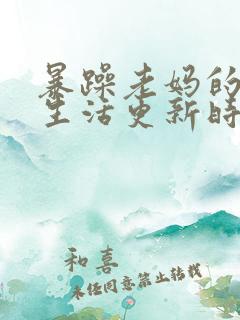 暴躁老妈的
生活更新时
和喜
未经同意禁止转载